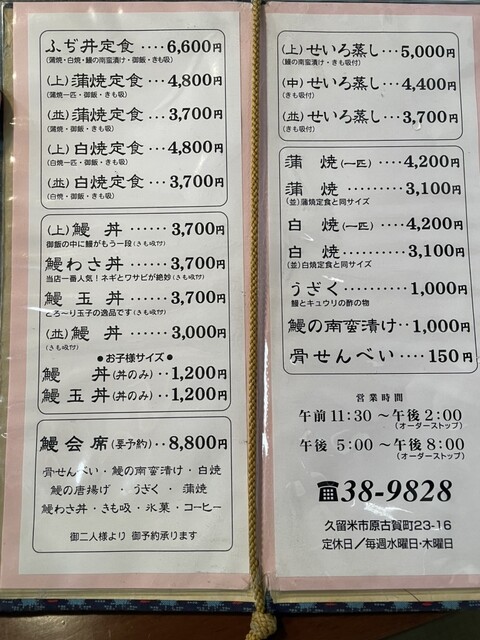 ふぢ丼定食‥‥6,600円
(蒲焼・白焼・鰻の南蛮漬け・御飯・きも吸)
(上)蒲焼定食‥4,800円
(蒲焼一匹・御飯・きも吸)
(並)蒲焼定食‥3,700円
(蒲焼・御飯・きも吸)
(上)白焼定食‥4,800円
(白焼一匹・御飯・きも吸)
(並)白焼定食‥3,700円
(白焼・御飯・きも吸)
(上)鰻 丼‥‥‥3,700円
御飯の中に鰻がもう一段(きも吸付)
鰻わさ丼‥‥‥3,700円
当店一番人気!ネギとワサビが絶妙(きも吸付)
鰻 玉 丼‥‥‥3,700円
とろ〜り玉子の逸品です(きも吸付)
(並)鰻 丼‥‥‥3,000円
(きも吸付)
●お子様サイズ●
鰻 丼(丼のみ)‥1,200円
鰻玉丼(丼のみ)‥1,200円
鰻会席(要予約)‥8,800円
骨せんべい・鰻の南蛮漬け・白焼
鰻の唐揚げ・うざく・蒲焼
鰻わさ丼・きも吸・氷菓・コーヒー
御二人様より 御予約承ります
(上)せいろ蒸し‥5,000円
(鰻の南蛮漬け・きも吸付)
(中)せいろ蒸し‥4,400円
(きも吸付)
(並)せいろ蒸し‥3,700円
(きも吸付)
蒲 焼(一匹)‥‥4,200円
蒲 焼‥‥‥‥3,100円
(並)蒲焼定食と同サイズ
白 焼(一匹)‥‥4,200円
白 焼‥‥‥‥3,100円
(並)白焼定食と同サイズ
うざく‥‥‥‥1,000円
鰻とキュウリの酢の物
鰻の南蛮漬け‥1,000円
骨せんべい‥‥150円
営業時間
午前11:30〜午後2:00
(オーダーストップ)
午後 5:00〜午後8:00
(オーダーストップ)
☎38-9828
久留米市原古賀町23-16
定休日/毎週水曜日・木曜日